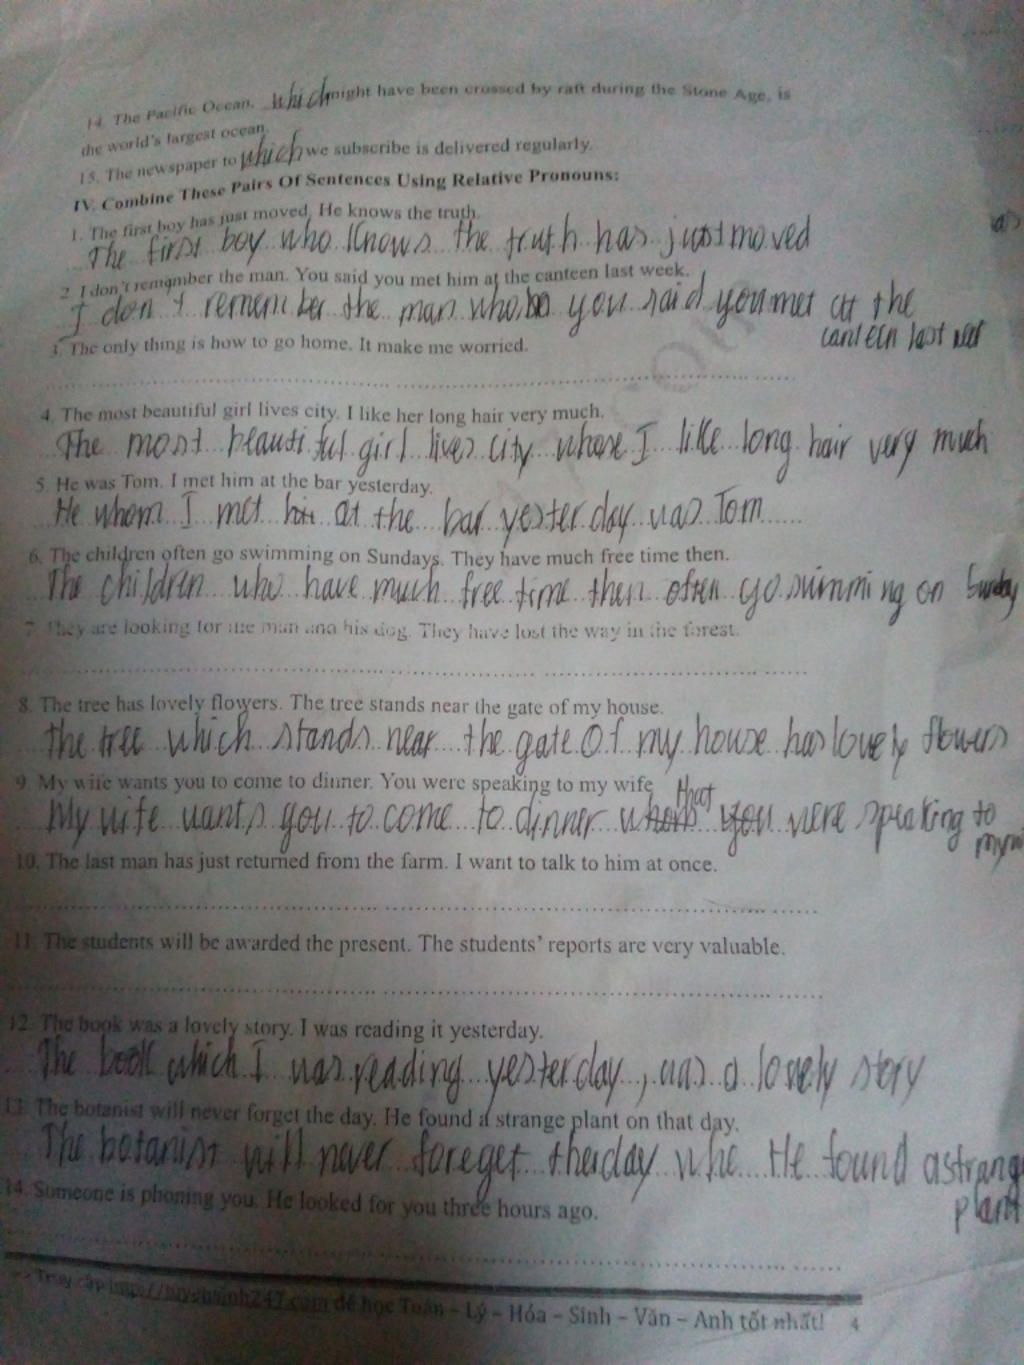 14. The Pacific Ocean, which might have been crossed by raft during the Stone Age, is
the world's largest ocean.
15. The newspaper to which we subscribe is delivered regularly.
IV. Combine These Pairs Of Sentences Using Relative Pronouns:
1. The first boy has just moved. He knows the truth.
The first boy who knows the truth has just moved
2. I don't remember the man. You said you met him at the canteen last week.
I don't remember the man whom you said you met at the
canteen last
3. The only thing is how to go home. It make me worried.
4. The most beautiful girl lives city. I like her long hair very much.
The most beautiful girl lives city whose I like long hair very much
5. He was Tom. I met him at the bar yesterday.
He whom I met at the bar yesterday was Tom
6. The children often go swimming on Sundays. They have much free time then.
The children who have much free time then often go swimming on Sunday
7. They are looking for the man and his dog. They have lost the way in the forest.
8. The tree has lovely flowers. The tree stands near the gate of my house.
The tree which stands near the gate of my house has lovely flowers
9. My wife wants you to come to dinner. You were speaking to my wife
that
My wife wants you to come to dinner whom you were speaking to
10. The last man has just returned from the farm. I want to talk to him at once.
11. The students will be awarded the present. The students' reports are very valuable.
12. The book was a lovely story. I was reading it yesterday.
The book which I was reading yesterday, was a lovely story
13. The botanist will never forget the day. He found a strange plant on that day.
The botanist will never foreget the day whe He found a strang
plant
14. Someone is phoning you. He looked for you three hours ago.
Truy cập http://tuyensinh247.com để học Toán – Lý – Hóa – Sinh – Văn – Anh tốt nhất! 4